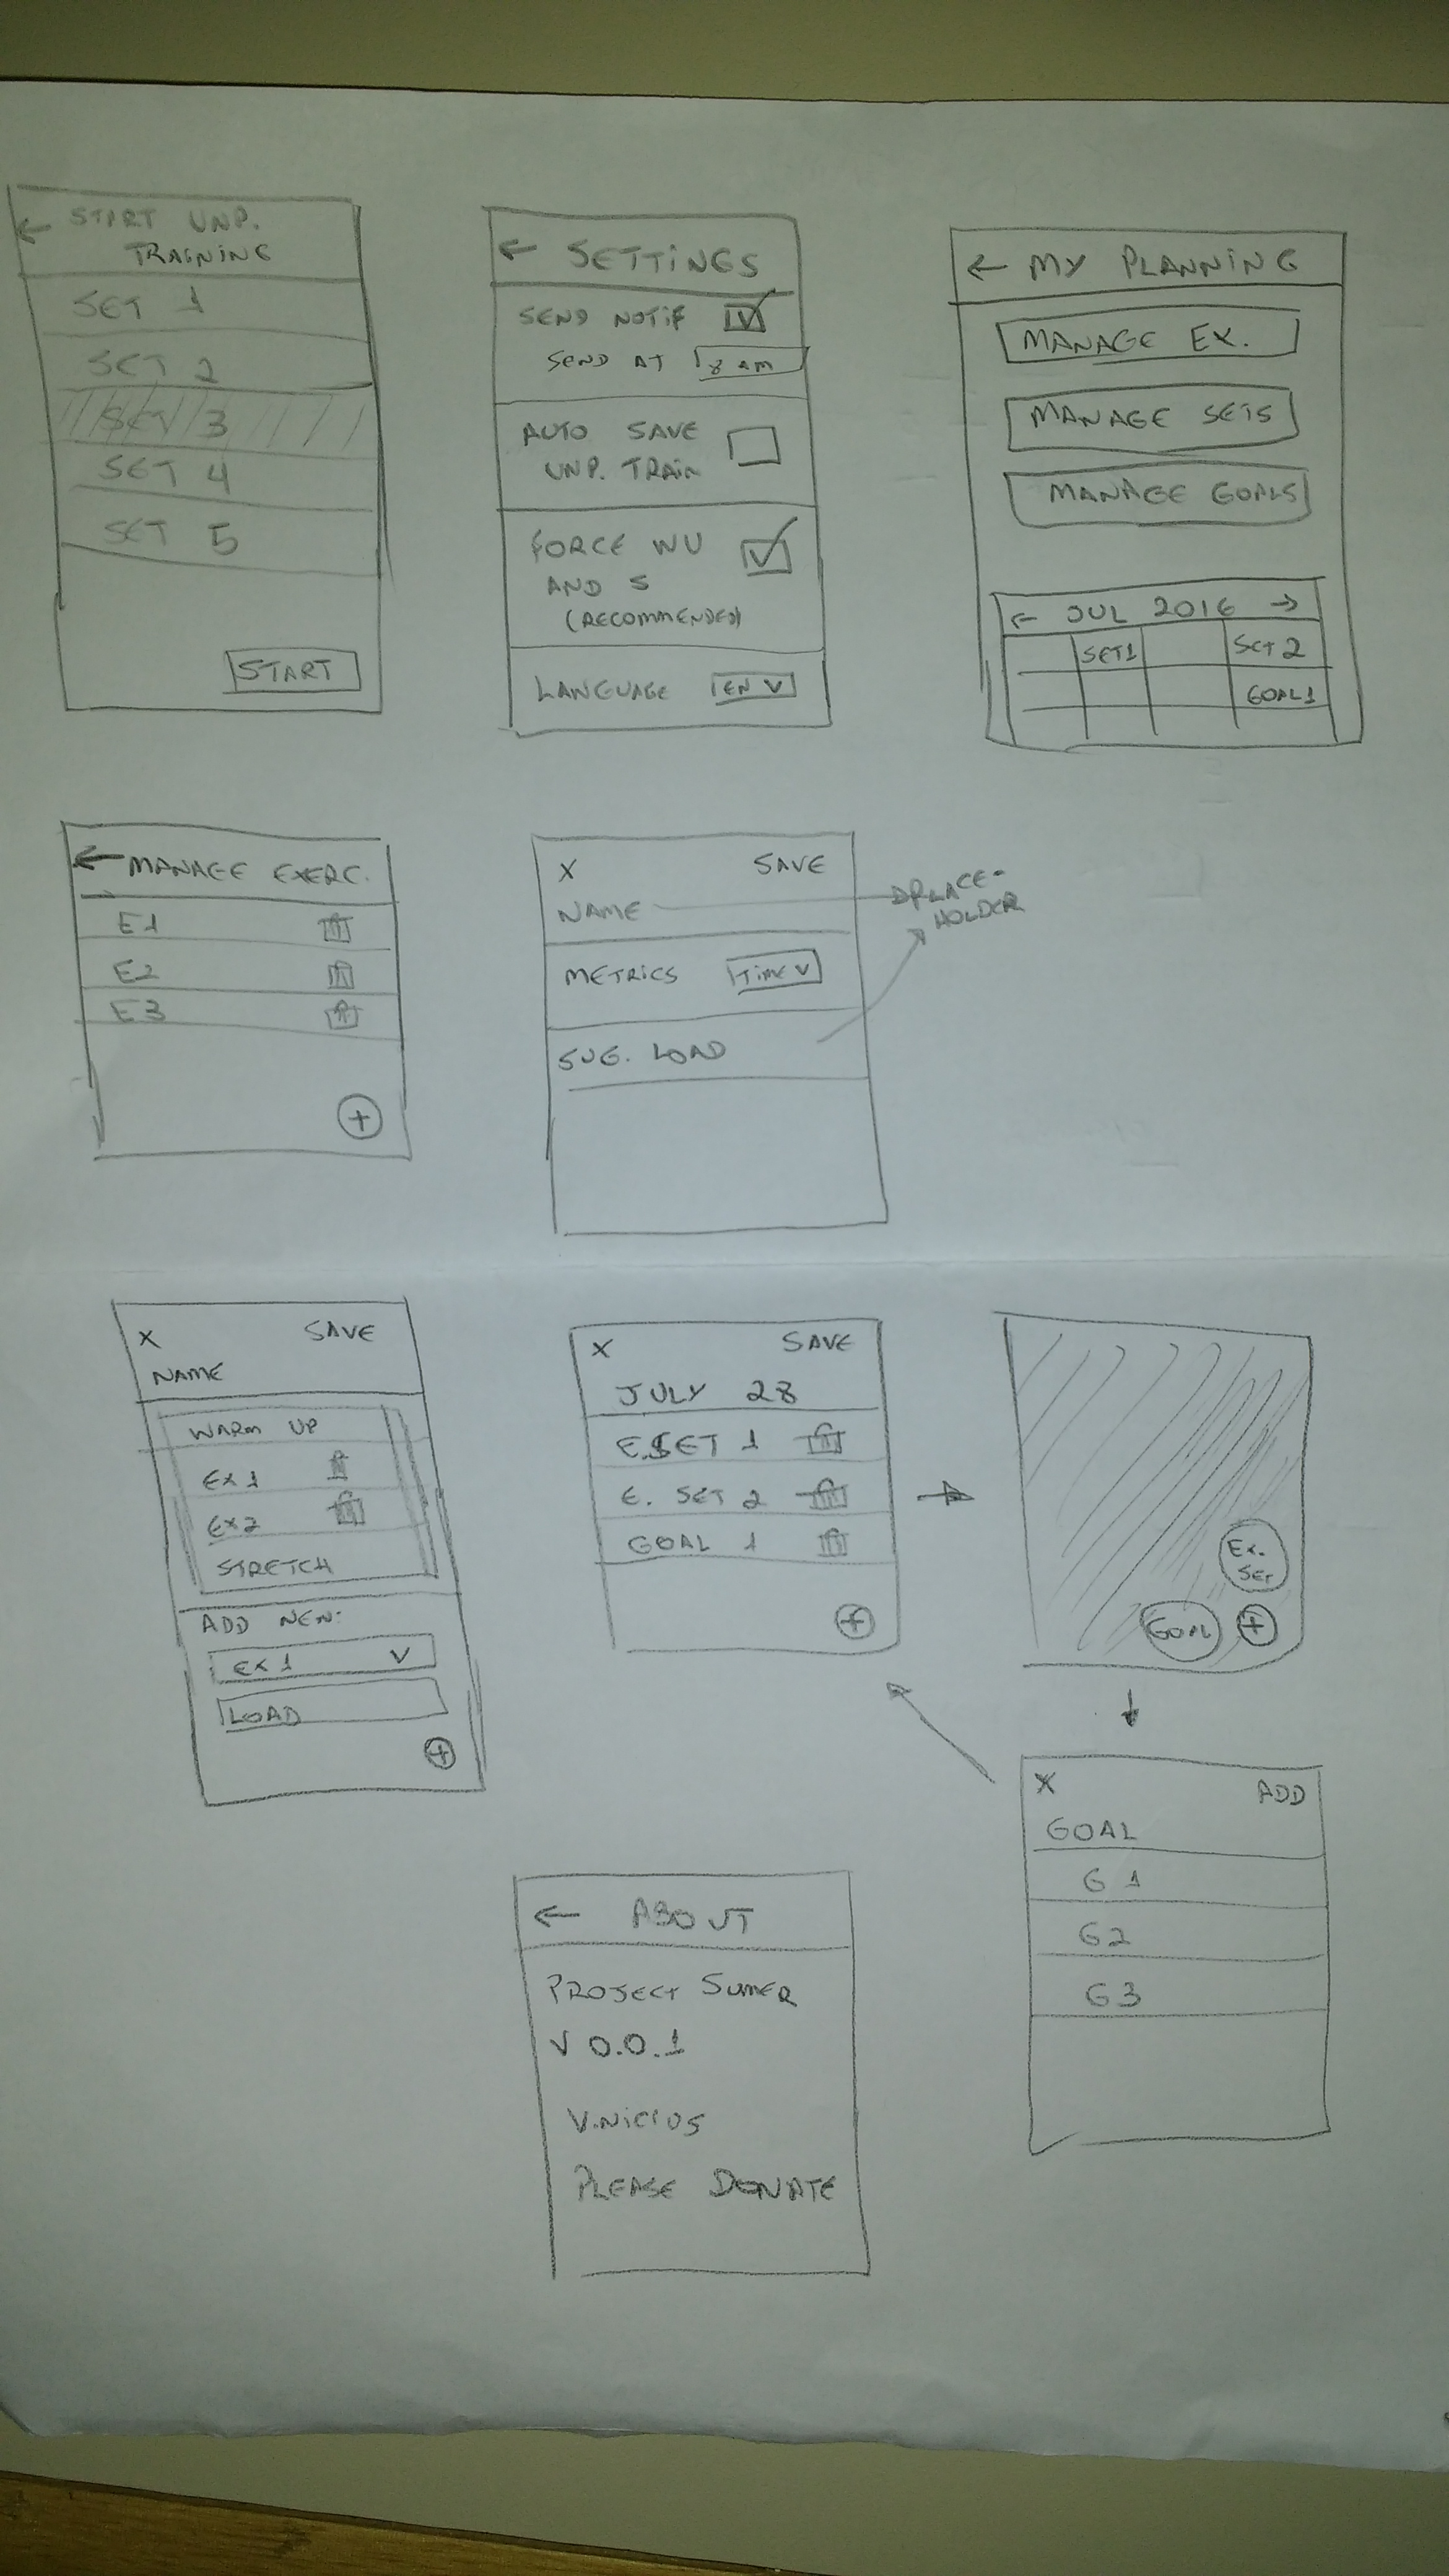 ← START UNP.
TRAINING
SET 1
SET 2
SET 3
SET 4
SET 5
START
← SETTINGS
SEND NOTIF
SEND AT 8 AM
AUTO SAVE
UNP. TRAIN
FORCE WU
AND S
(RECOMMENDED)
LANGUAGE EN V
← MY PLANNING
MANAGE EX.
MANAGE SETS
MANAGE GOALS
← JUL 2016 →
SET1 SET 2
GOAL1
← MANAGE EXERC.
E1
E2
E3
+
X SAVE
NAME
METRICS TIME V
SUG. LOAD
PLACE-
HOLDER
X SAVE
NAME
WARM UP
EX1
EX2
STRETCH
ADD NEW:
EX1 V
LOAD
+
X SAVE
JULY 28
E.SET 1
E. SET 2
GOAL 1
+
EX.
SET
GOAL +
X ADD
GOAL
G1
G2
G3
← ABOUT
PROJECT SUMER
V 0.0.1
VINICIUS
PLEASE DONATE